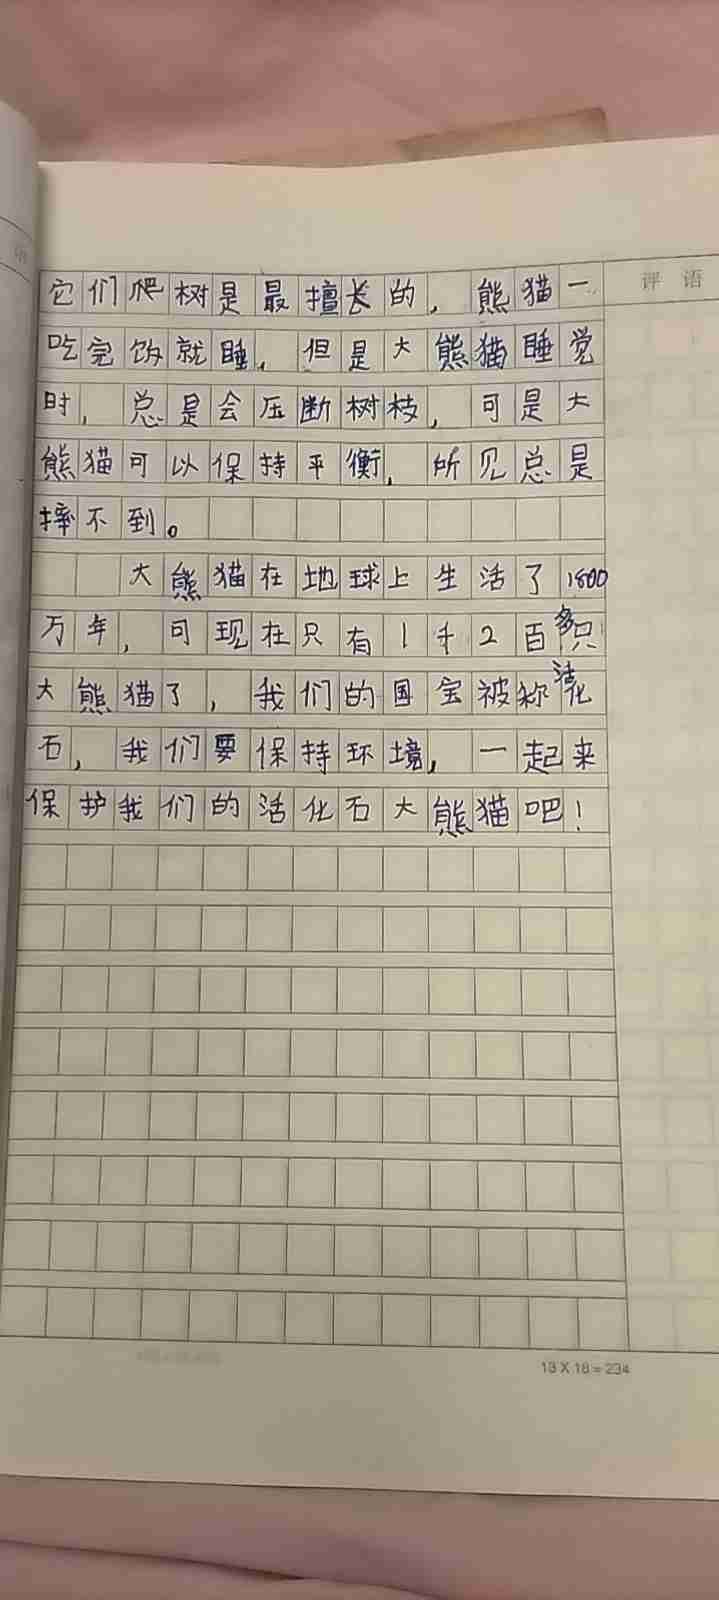 评语
它们爬树是最擅长的，熊猫一
吃完饭就睡，但是大熊猫睡觉
时，总是会压断树枝，可是大
熊猫可以保持平衡，所见总是
摔不到。
大熊猫在地球上生活了1800
万年，可现在只有1千2百多只
大熊猫了，我们的国宝被称活化
石，我们要保持环境，一起来
保护我们的活化石大熊猫吧！
13X18=234